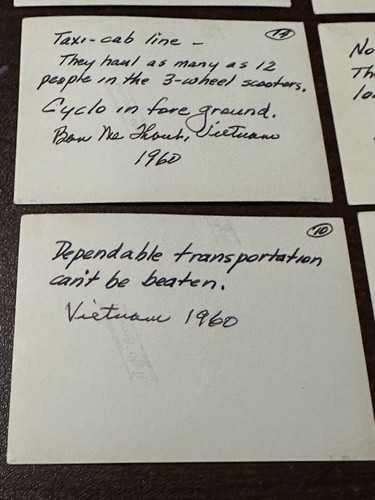 14
Taxi-cab line -
They haul as many as 12
people in the 3-wheel scooters.
Cyclo in fore ground.
Ban Me Thout, Vietnam
1960
No
Th
lo
10
Dependable transportation
can't be beaten.
Vietnam 1960